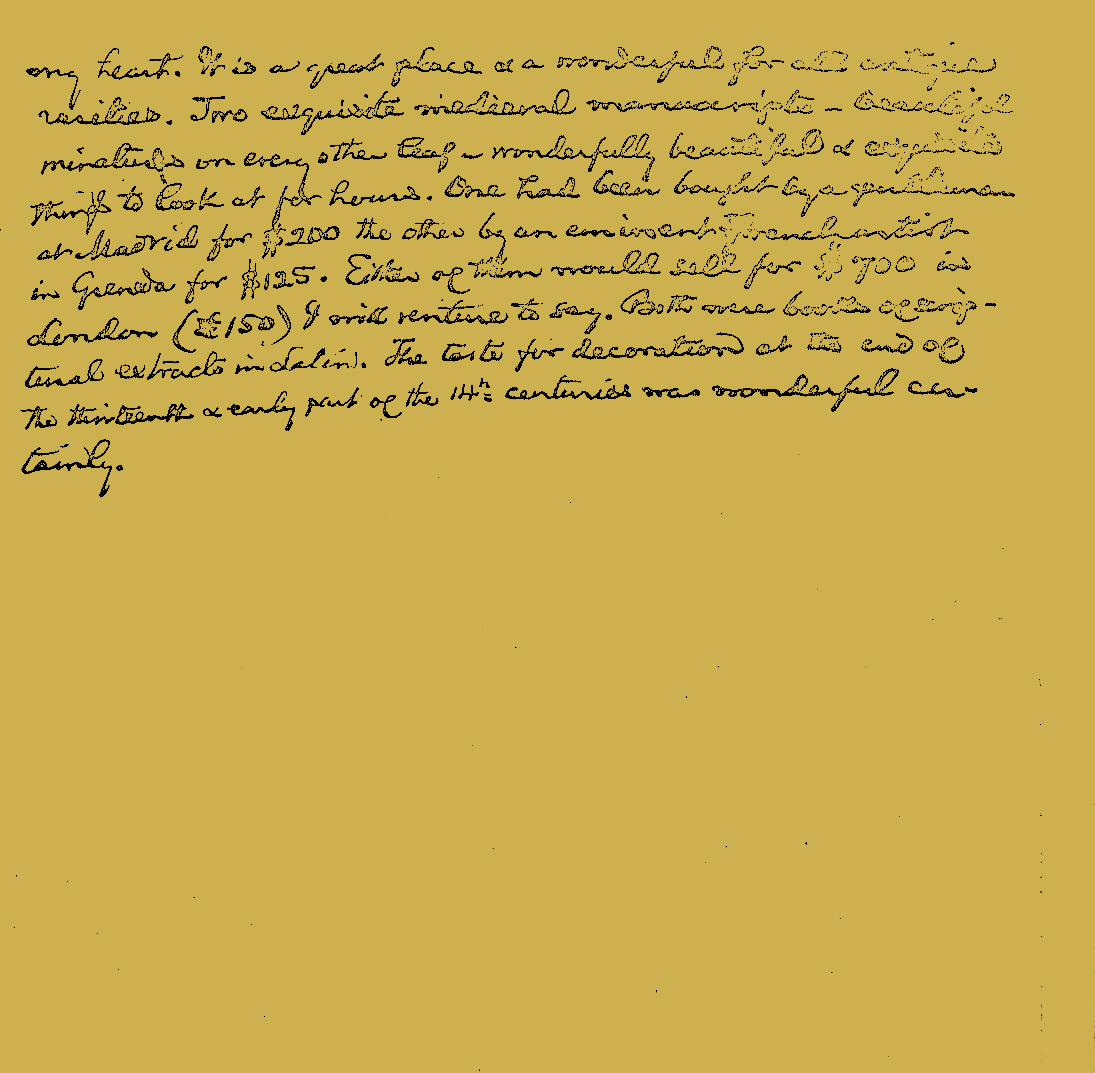 my heart. It is a great place & a wonderful for all antique
rarities. Two exquisite medieval manuscripts – beautiful
miniatures on every other leaf – wonderfully beautiful & exquisite
things to look at for hours. One had been bought by a gentleman
at Madrid for $200 the other by an eminent French artist
in Grenada for $125. Either of them would sell for $700 in
London (£150) I will venture to say. Both were books of scrip-
tural extracts in Latin. The taste for decoration at the end of
the thirteenth & early part of the 14th centuries was wonderful cer-
tainly.